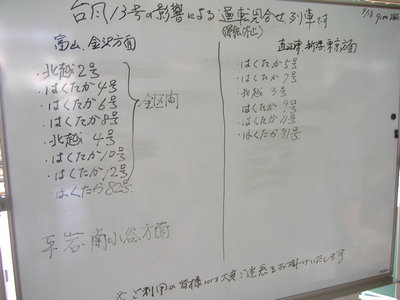 台風13号の影響による運転見合せ列車です
(運転休止)
富山、金沢方面
・北越2号
・はくたか4号
・はくたか6号
・はくたか8号
・北越 4号
・はくたか10号
・はくたか12号
・はくたか82号
全区間
平岩、南小谷方面
直江津 新潟 東京方面
・はくたか5号
・はくたか7号
・北越 3号
・はくたか9号
・はくたか11号
・はくたか81号
※ご利用の皆様には大変ご迷惑をお掛けいたします